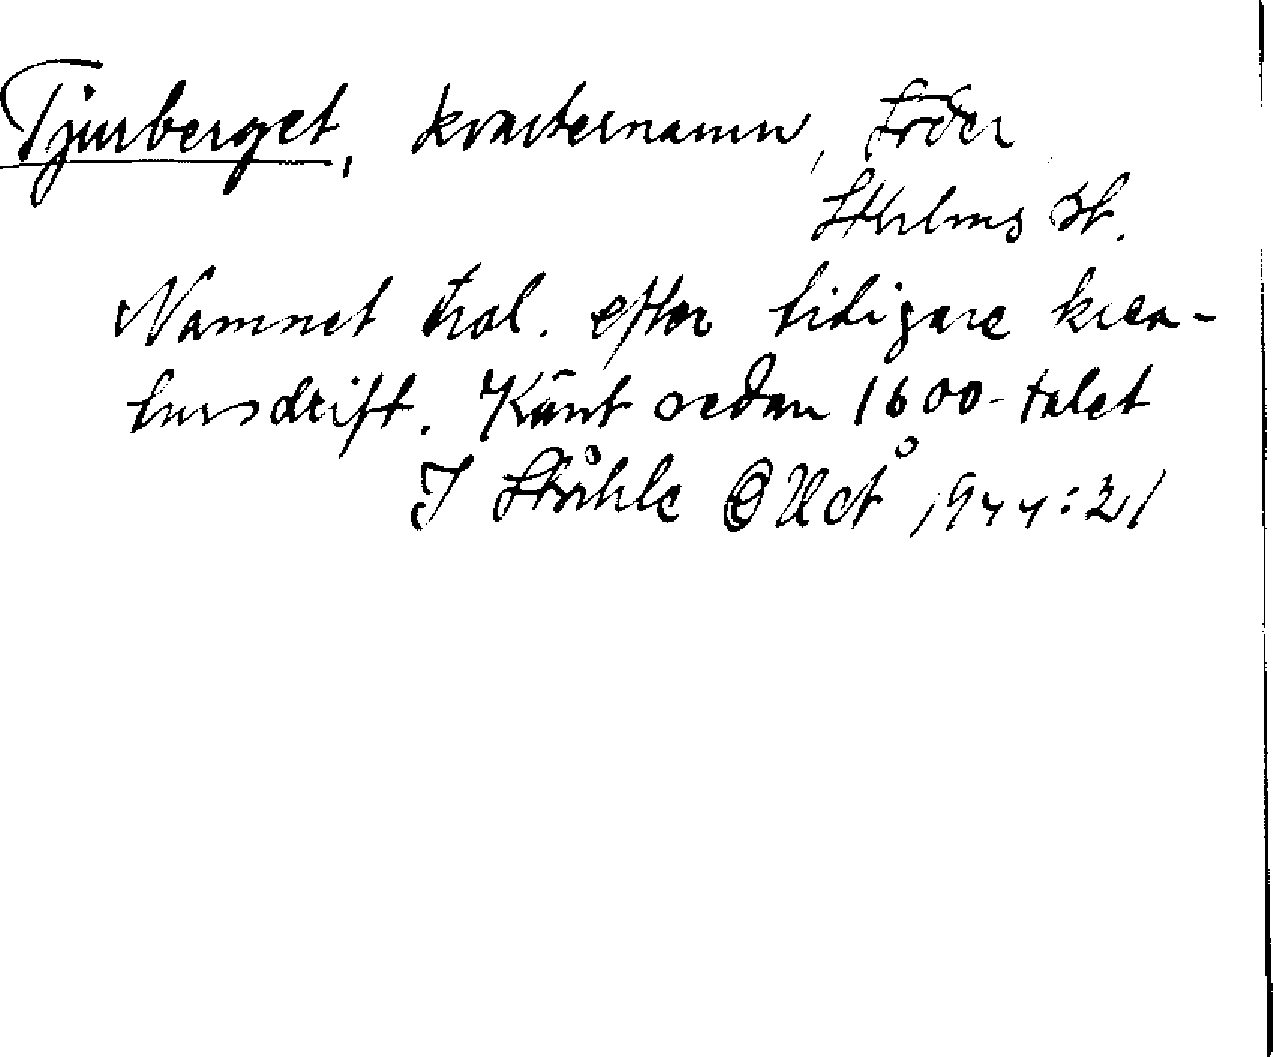 Tjurberget, kvartersnamn, Söder
Sthlms st.
Namnet trol. efter tidigare krea-
tursdrift. Känt sedan 1600-talet
I Ståhle 1944:21